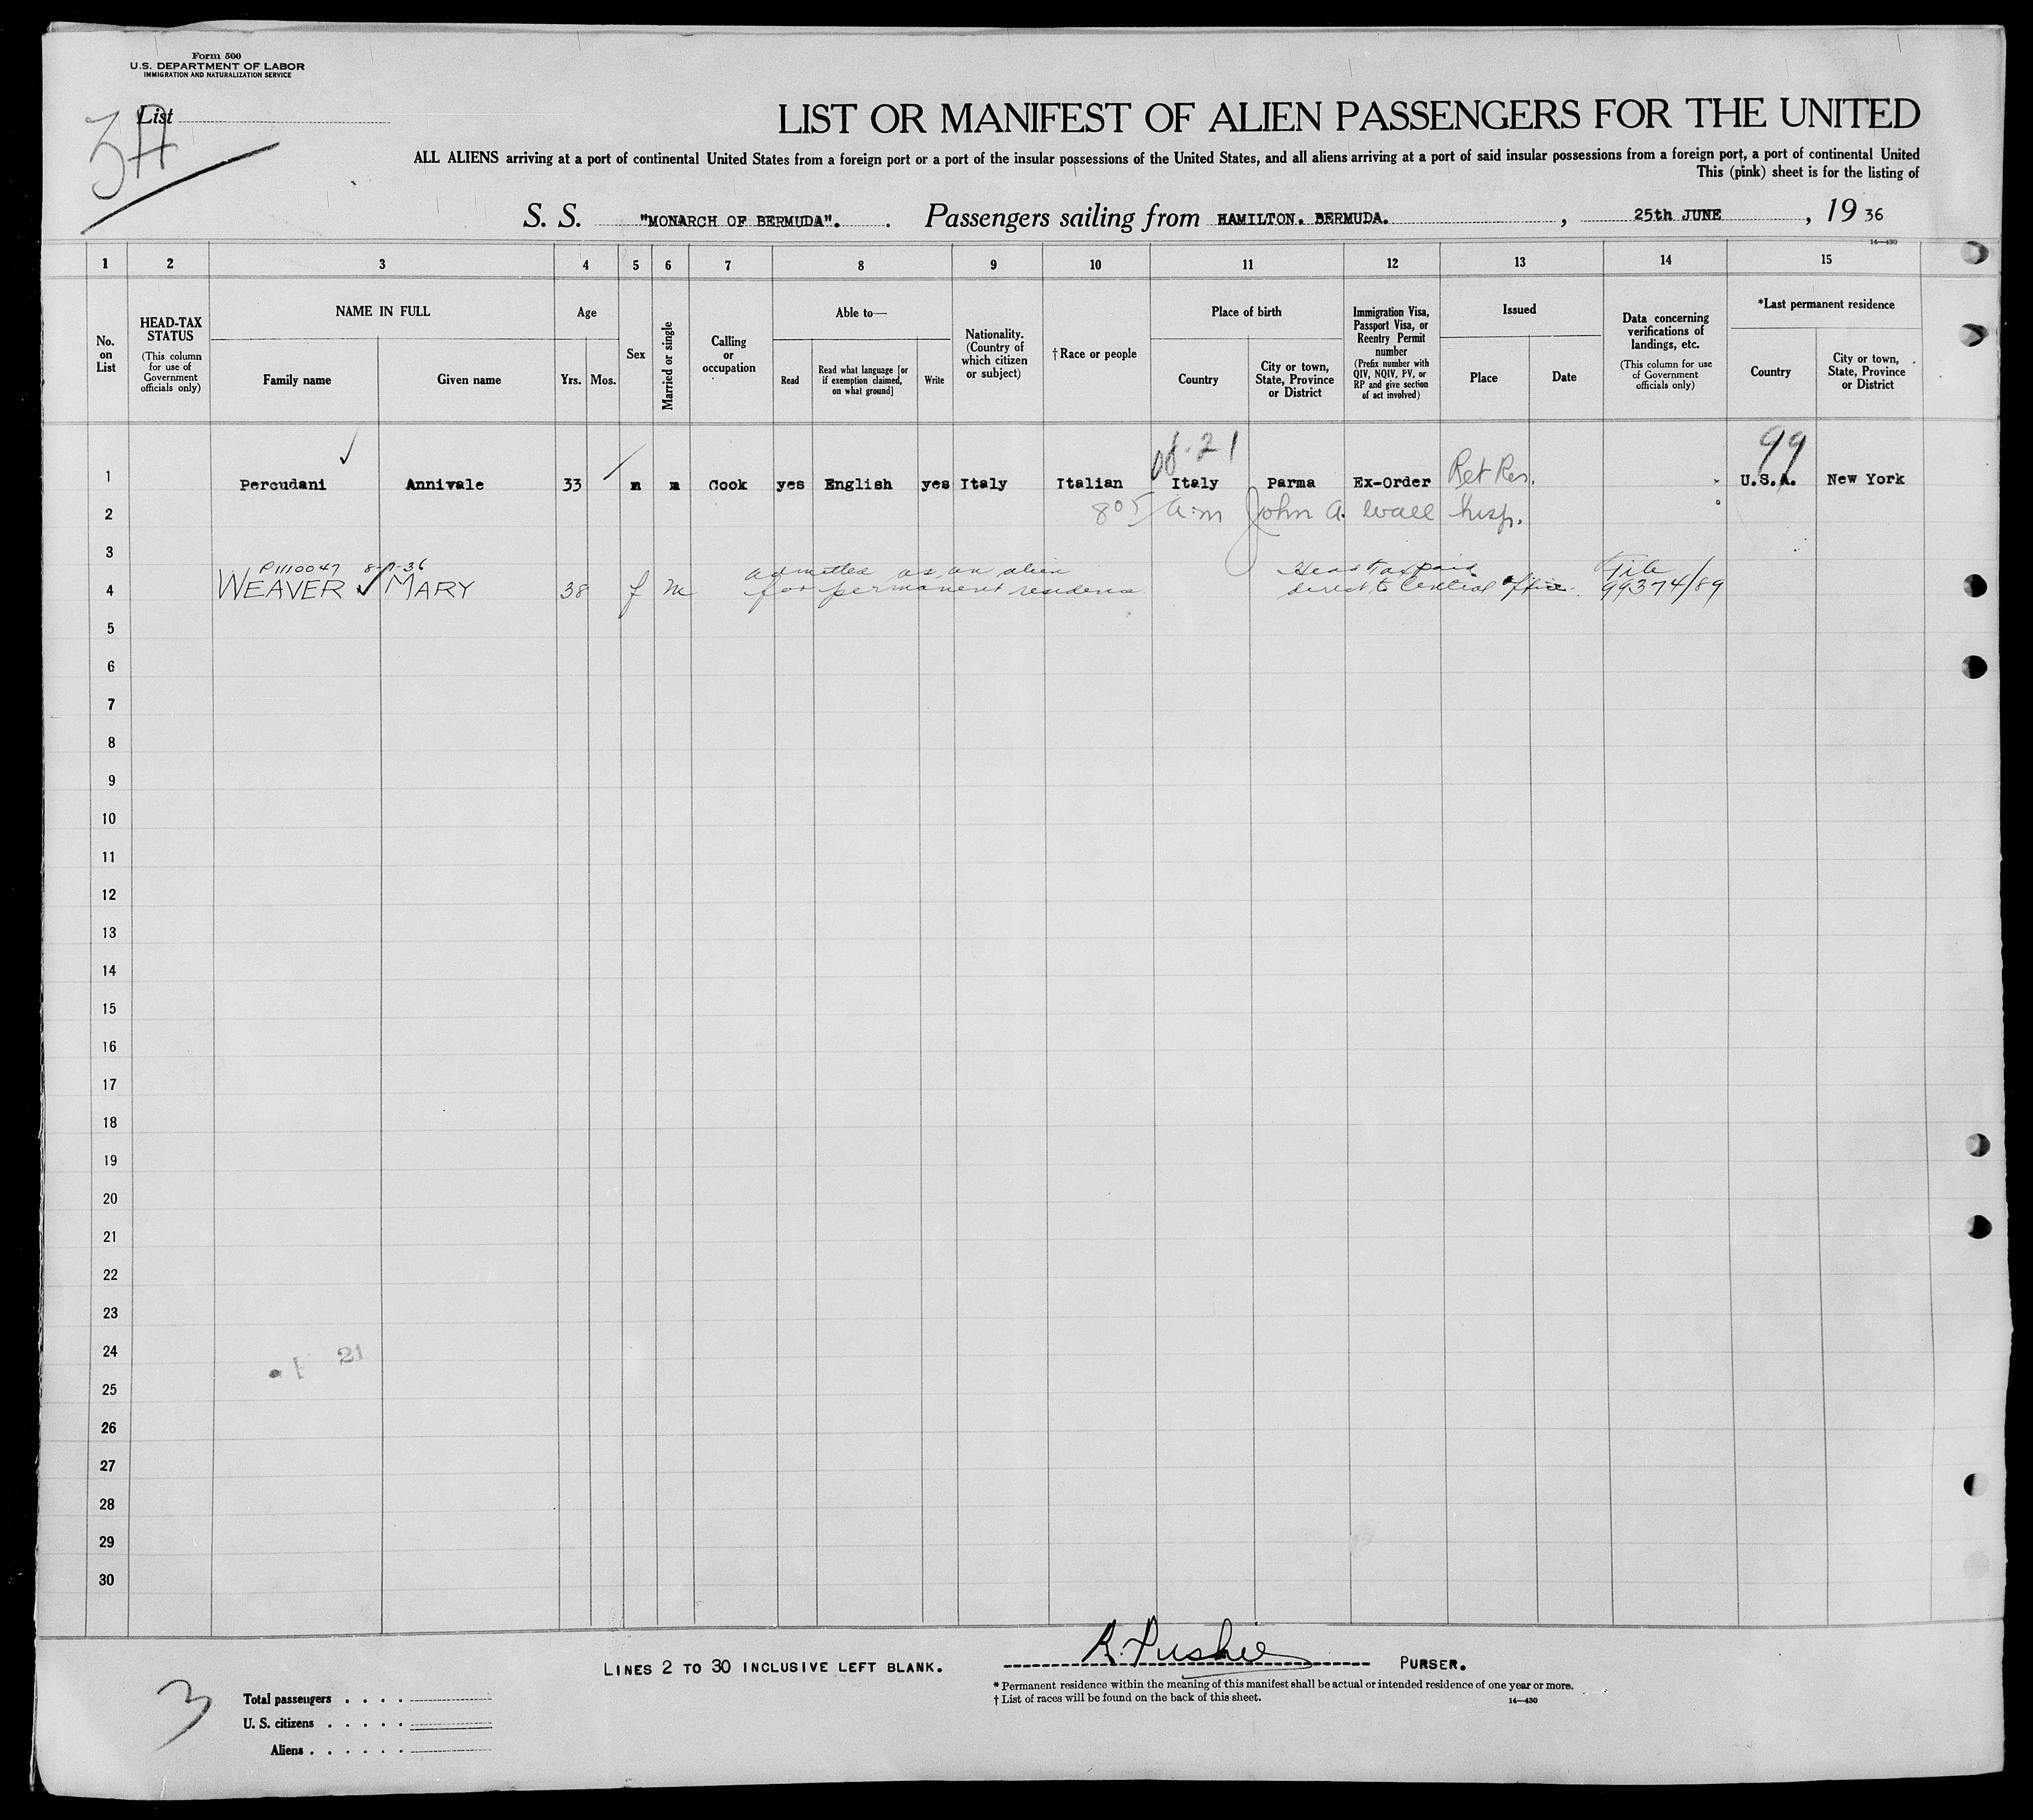 Form 500
U.S. DEPARTMENT OF LABOR
IMMIGRATION AND NATURALIZATION SERVICE
List
3A
LIST OR MANIFEST OF ALIEN PASSENGERS FOR THE UNITED
ALL ALIENS arriving at a port of continental United States from a foreign port or a port of the insular possessions of the United States, and all aliens arriving at a port of said insular possessions from a foreign port, a port of continental United
This (pink) sheet is for the listing of
S. S. "MONARCH OF BERMUDA". . Passengers sailing from HAMILTON. BERMUDA. , 25th JUNE , 19 36
14—430
1 2 3 4 5 6 7 8 9 10 11 12 13 14 15
No. on List
HEAD-TAX STATUS
(This column for use of Government officials only)
NAME IN FULL
Family name
Given name
Age
Yrs.
Mos.
Sex
Married or single
Calling or occupation
Able to—
Read
Read what language [or if exemption claimed, on what ground]
Write
Nationality. (Country of which citizen or subject)
† Race or people
Place of birth
Country
City or town, State, Province or District
Immigration Visa, Passport Visa, or Reentry Permit number
(Prefix number with QIV, NQIV, PV, or RP and give section of act involved)
Issued
Place
Date
Data concerning verifications of landings, etc.
(This column for use of Government officials only)
*Last permanent residence
Country
City or town, State, Province or District
21 99
1 Percudani Annivale 33 m m Cook yes English yes Italy Italian Italy Parma Ex-Order Ret Res. U.S.A. New York
2 805 a.m John A. Wall Insp.
3
P1110047 36 admitted as an alien Head tax paid File
4 WEAVER ✓ MARY 38 f m for permanent residence direct to Central Office. 99374/89
5
6
7
8
9
10
11
12
13
14
15
16
17
18
19
20
21
22
23
24 21
25
26
27
28
29
30
LINES 2 TO 30 INCLUSIVE LEFT BLANK. R. Pushie PURSER.
* Permanent residence within the meaning of this manifest shall be actual or intended residence of one year or more.
† List of races will be found on the back of this sheet. 14—430
3
Total passengers
U. S. citizens
Aliens